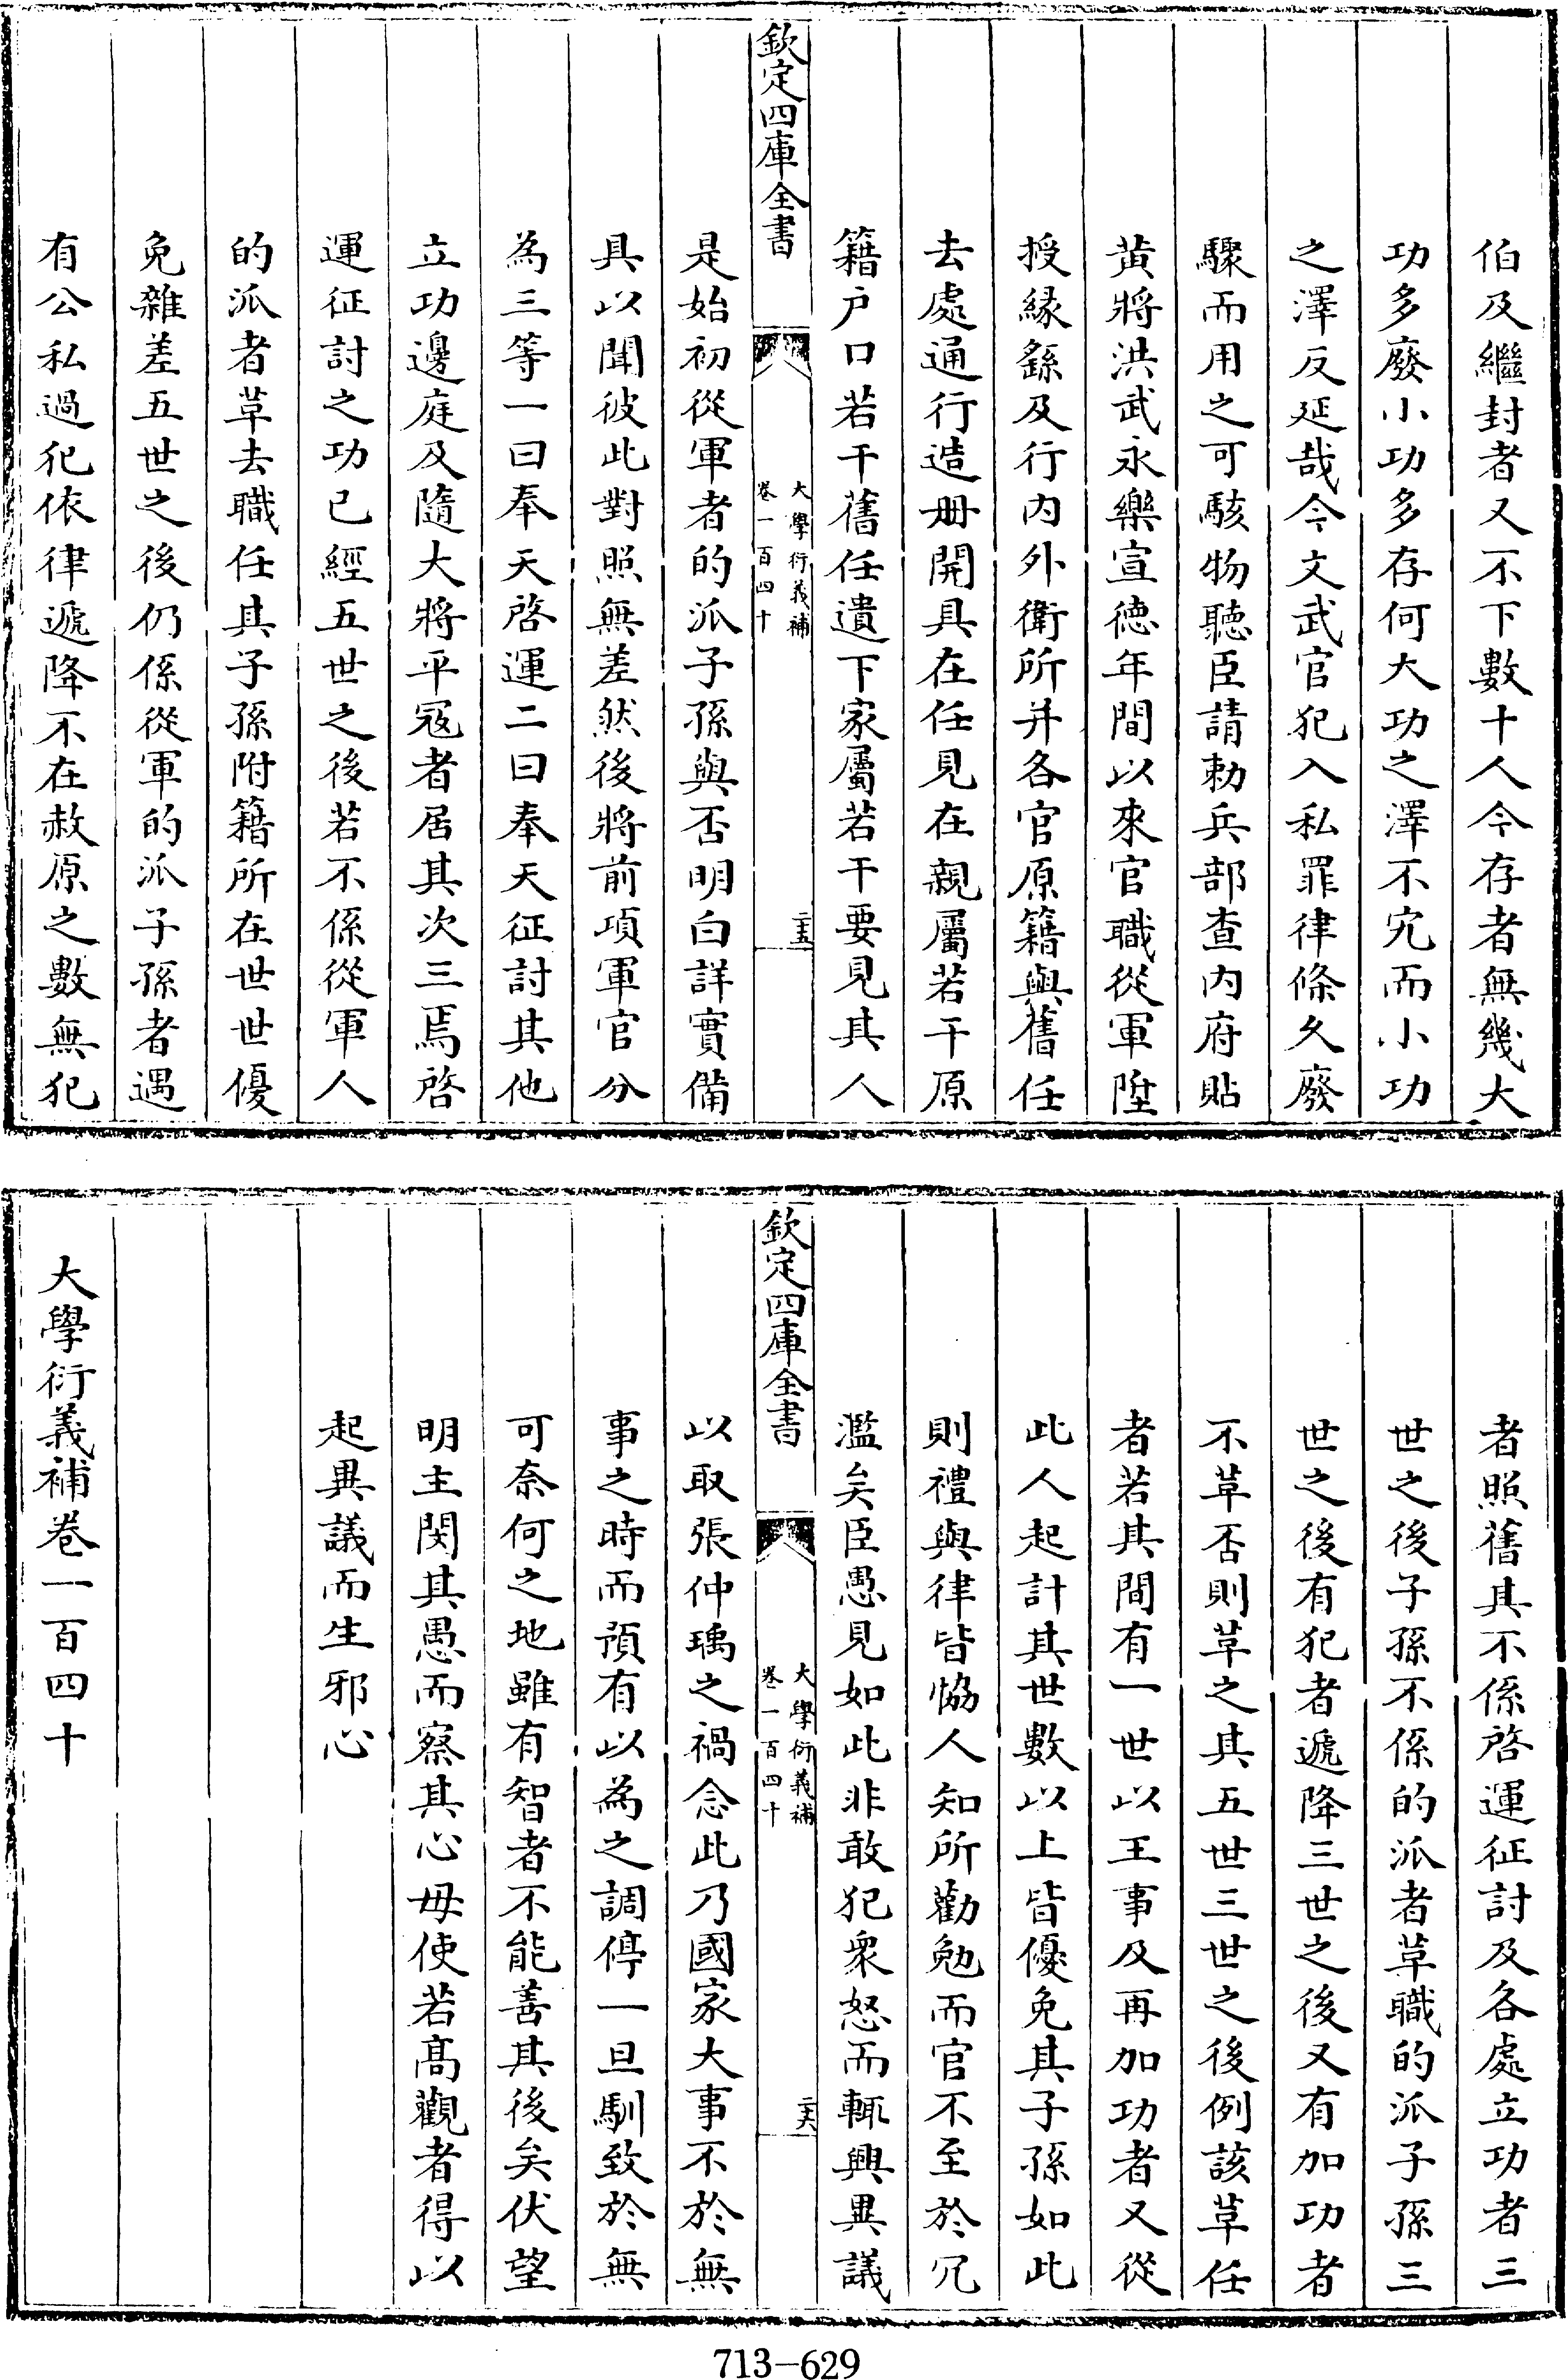 伯及繼封者又不下數十人今存者無幾大
功多廢小功多存何大功之澤不究而小功
之澤反延哉今文武官犯入私罪律條久廢
驟而用之可駭物聽臣請勅兵部查內府貼
黃將洪武永樂宣德年間以來官職從軍陞
授縁繇及行內外衛所并各官原籍與舊任
去處通行造册開具在任見在親屬若干原
籍户口若干舊任遺下家屬若干要見其人
欽定四庫全書
大學衍義補
卷一百四十
二十五
是始初從軍者的派子孫與否明白詳實備
具以聞彼此對照無差然後將前項軍官分
為三等一曰奉天啓運二曰奉天征討其他
立功邊庭及隨大將平寇者居其次三焉啓
運征討之功已經五世之後若不係從軍人
的派者草去職任其子孫附籍所在世世優
免雜差五世之後仍係從軍的派子孫者遇
有公私過犯依律遞降不在赦原之數無犯
者照舊其不係啓運征討及各處立功者三
世之後子孫不係的派者草職的派子孫三
世之後有犯者遞降三世之後又有加功者
不草否則草之其五世三世之後例該草任
者若其間有一世以王事及再加功者又從
此人起計其世數以上皆優免其子孫如此
則禮與律皆恊人知所勸勉而官不至於冗
濫矣臣愚見如此非敢犯衆怒而輒興異議
欽定四庫全書
大學衍義補
卷一百四十
二十六
以取張仲瑀之禍念此乃國家大事不於無
事之時而預有以為之調停一旦馴致於無
可奈何之地雖有智者不能善其後矣伏望
明主閔其愚而察其心毋使若髙觀者得以
起異議而生邪心
大學衍義補卷一百四十
713-629